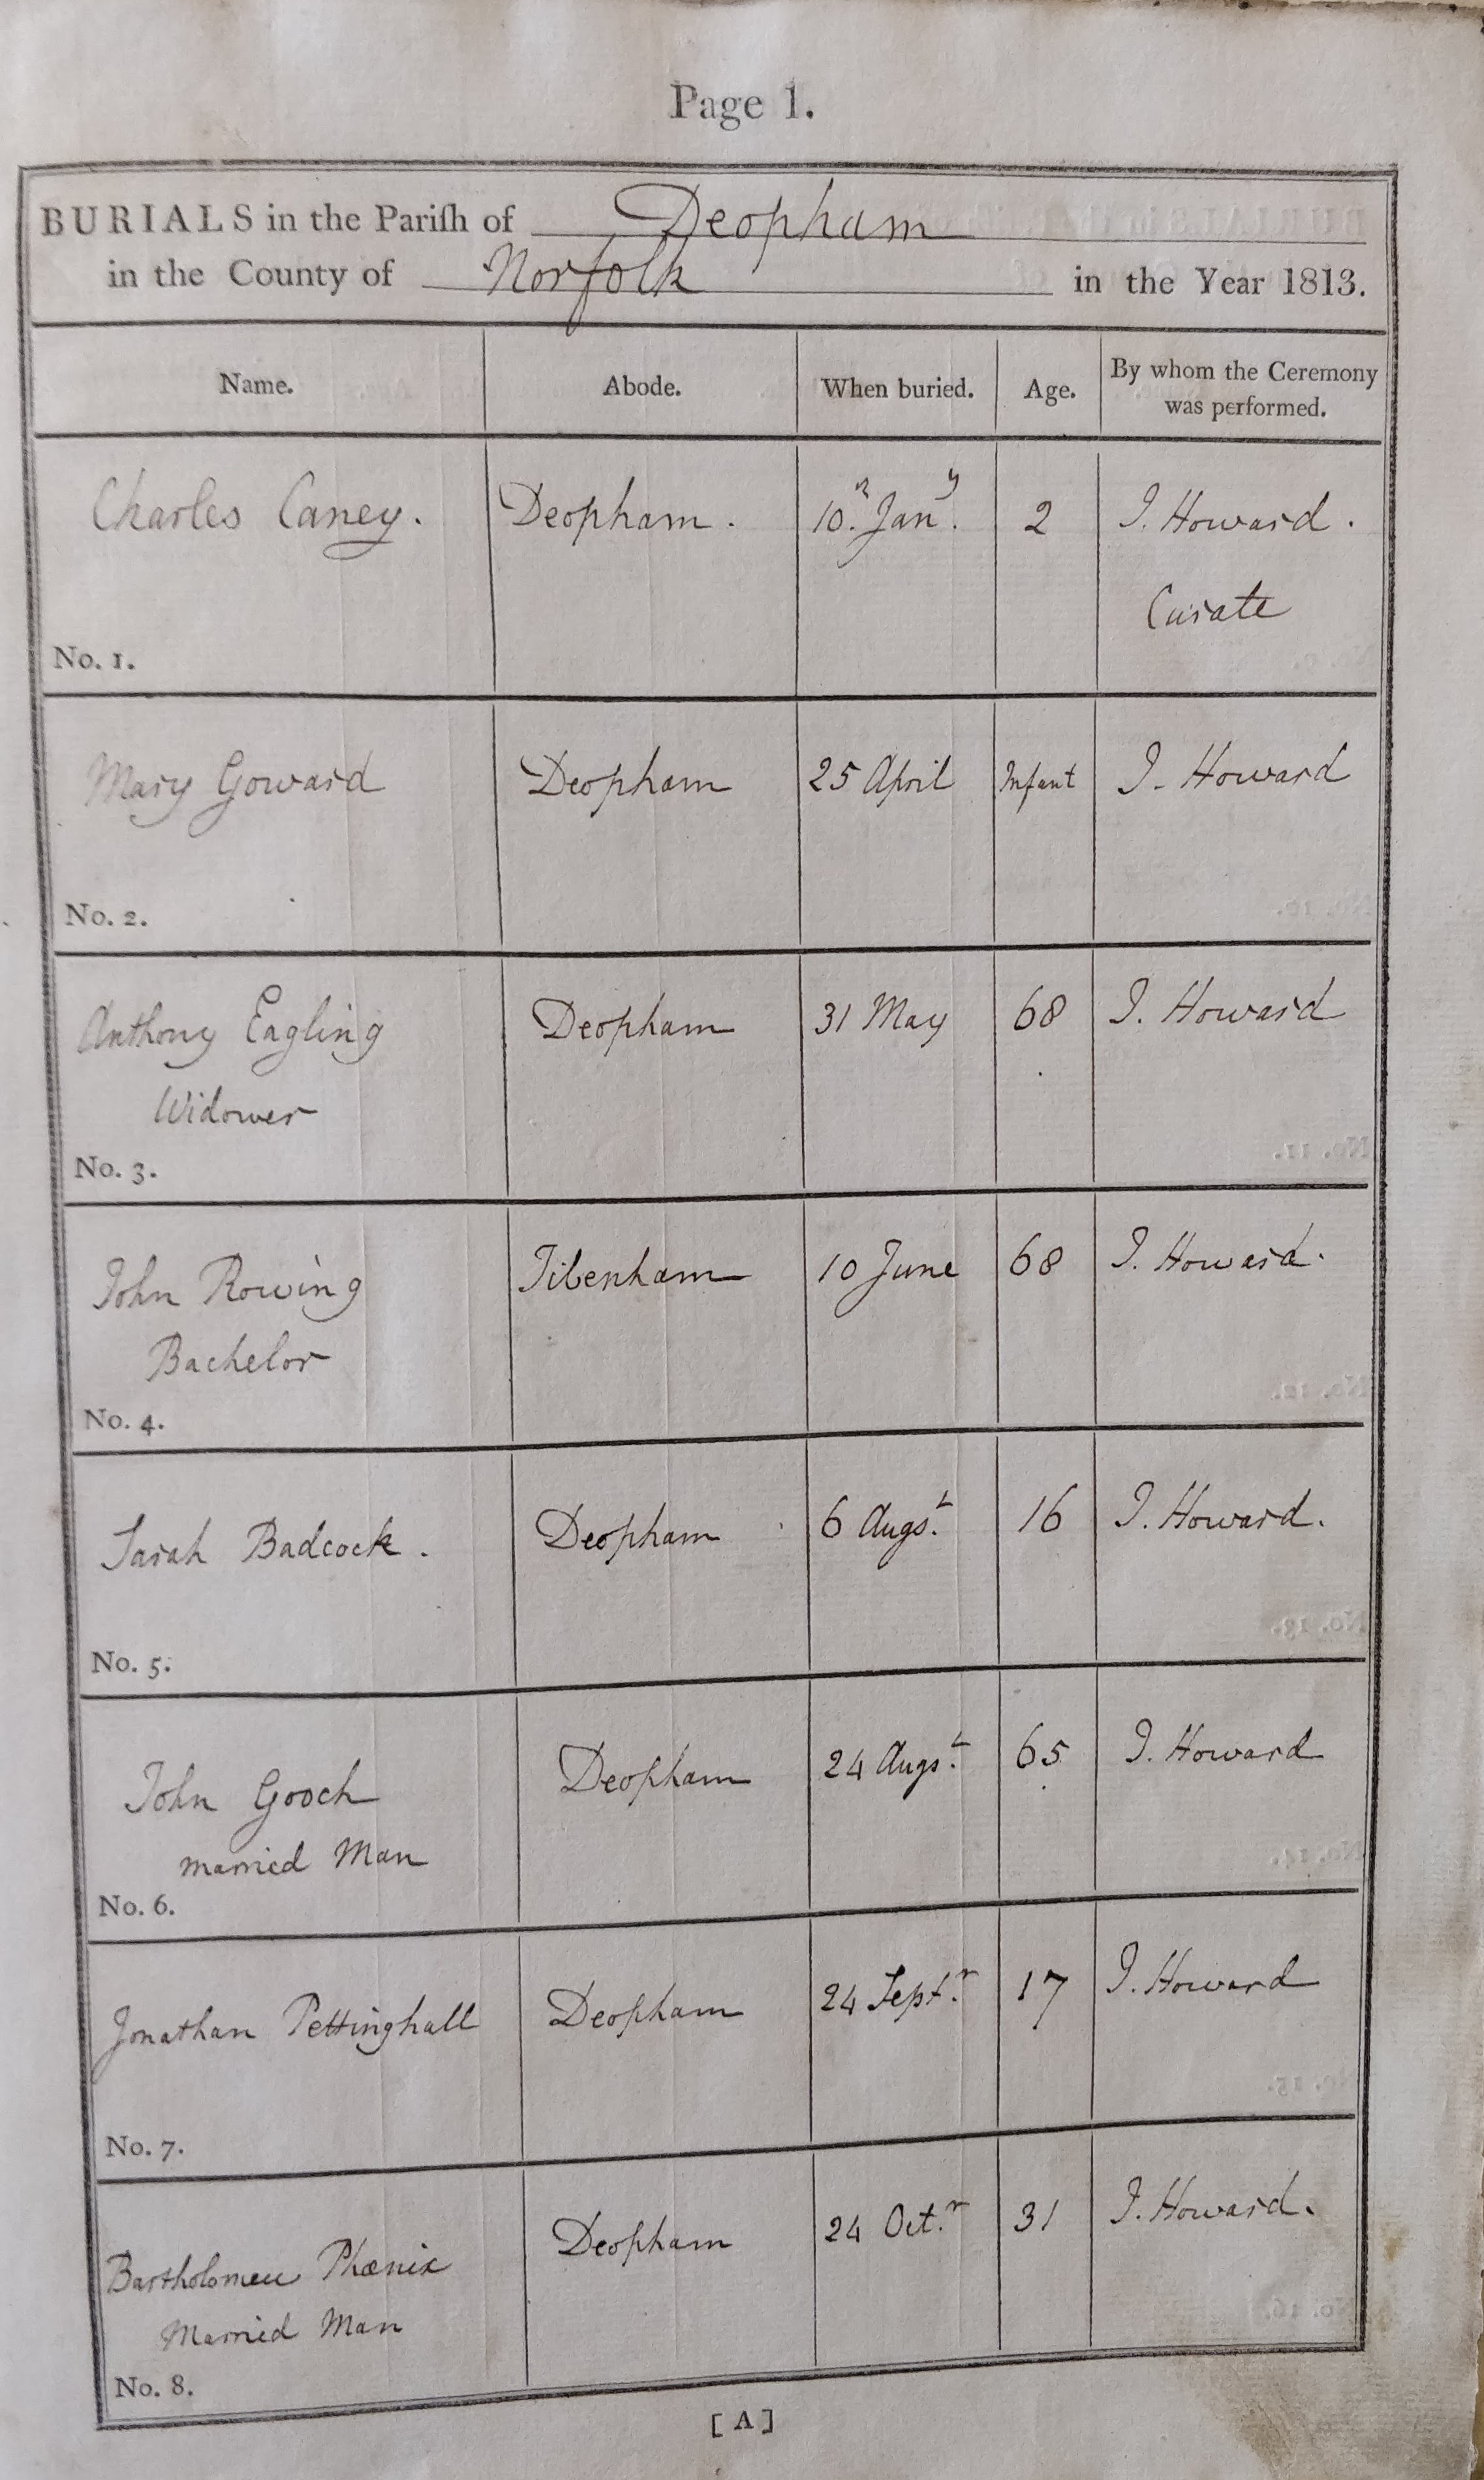 Page 1.
BURIALS in the Pariſh of Deopham
in the County of Norfolk in the Year 1813.
Name. Abode. When buried. Age. By whom the Ceremony
was performed.
Charles Caney. Deopham. 10. Jany. 2 J. Howard.
Curate
No. 1.
Mary Goward Deopham 25 April Infant J. Howard
No. 2.
Anthony Eagling Deopham 31 May 68 J. Howard
Widower
No. 3.
John Rowing Tibenham 10 June 68 J. Howard.
Bachelor
No. 4.
Sarah Badcock. Deopham 6 Augst. 16 J. Howard.
No. 5.
John Gooch Deopham 24 Augst. 65 J. Howard
married Man
No. 6.
Jonathan Pettinghall Deopham 24 Septr. 17 J. Howard
No. 7.
Bartholomew Phœnix Deopham 24 Octr. 31 J. Howard.
Married Man
No. 8.
[A]